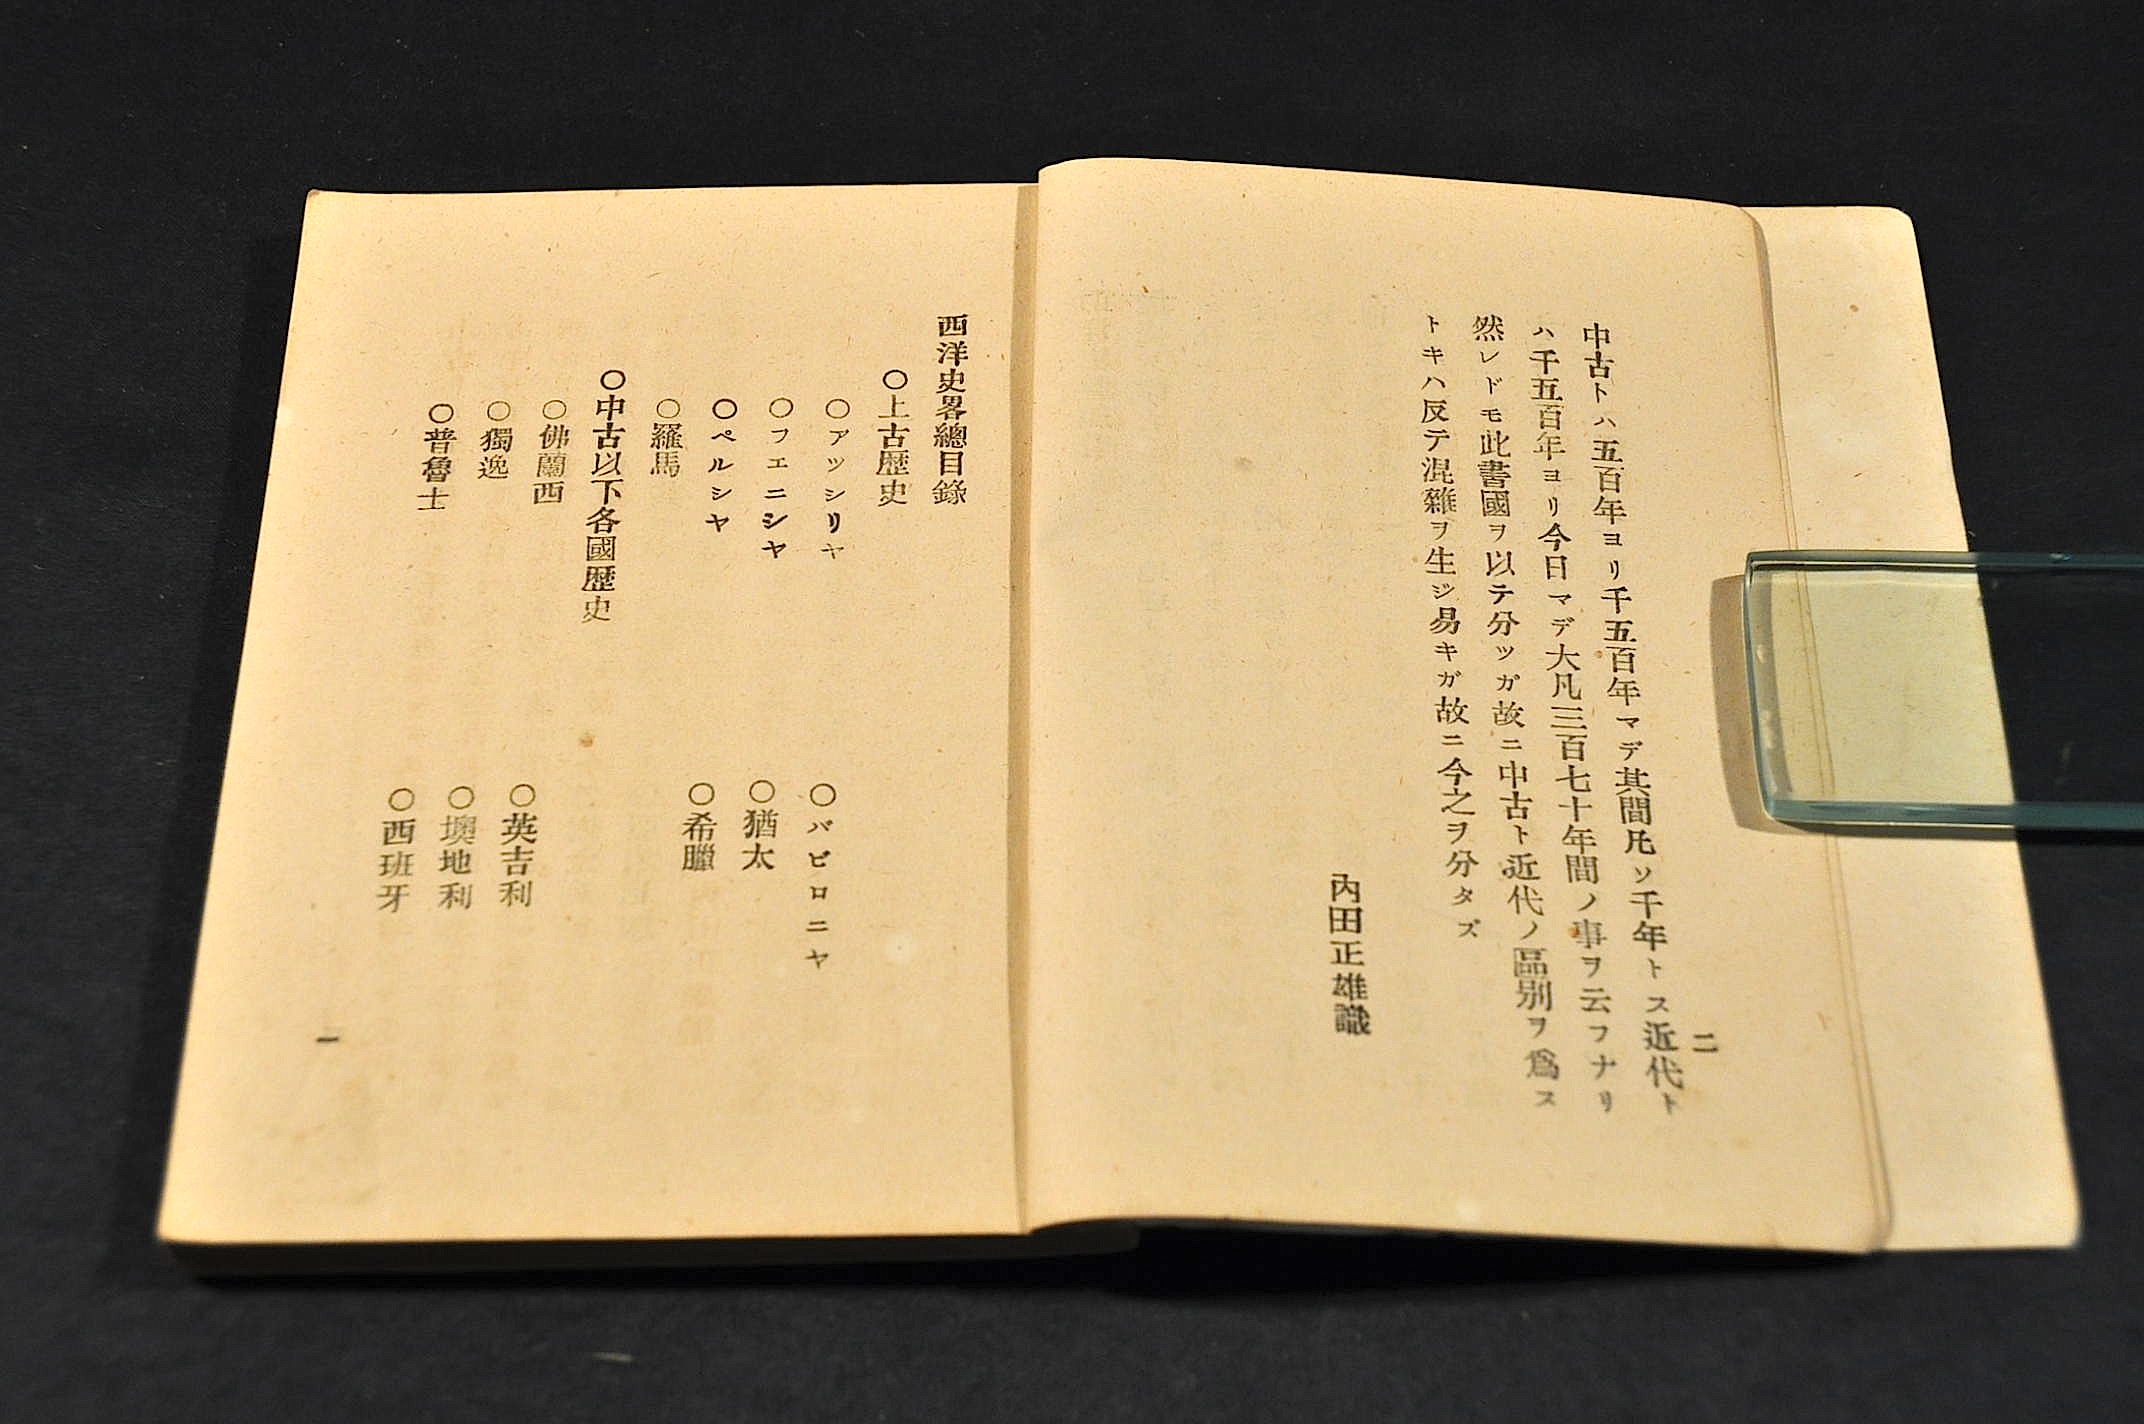 中古トハ五百年ヨリ千五百年マデ其間凡ソ千年トス近代ト
ハ千五百年ヨリ今日マデ大凡三百七十年間ノ事ヲ云フナリ
然レドモ此書國ヲ以テ分ツガ故ニ中古ト近代ノ區別ヲ爲ス
トキハ反テ混雜ヲ生ジ易キガ故ニ今之ヲ分タズ
內田正雄識
二
西洋史畧總目錄
〇上古歴史
〇アッシリヤ
〇バビロニヤ
〇フエニシヤ
〇猶太
〇ペルシヤ
〇希臘
〇羅馬
〇中古以下各國歴史
〇佛蘭西
〇英吉利
〇獨逸
〇墺地利
〇普魯士
〇西班牙
一